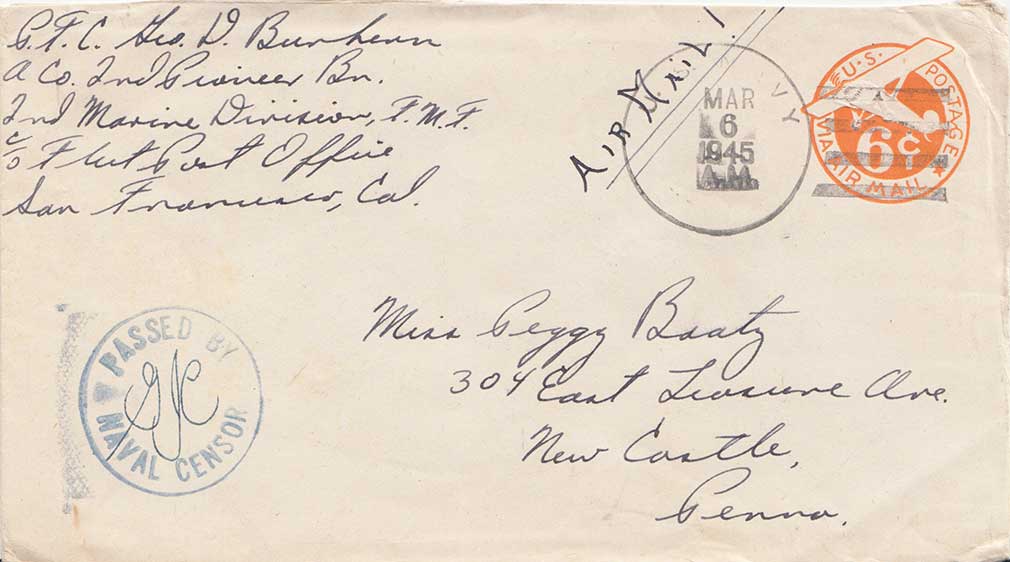 P.F.C. Geo. D. Burhenn
A Co. 2nd Pioneer Bn.
2nd Marine Division, F.M.F.
c/o Fleet Post Office
San Francisco, Cal.
AIR MAIL!
U.S. NAVY
MAR
6
1945
A.M.
U.S. POSTAGE
6c
VIA AIR MAIL
Miss Peggy Baatz
304 East Leasure Ave.
New Castle,
Penna.
PASSED BY
GJC
NAVAL CENSOR